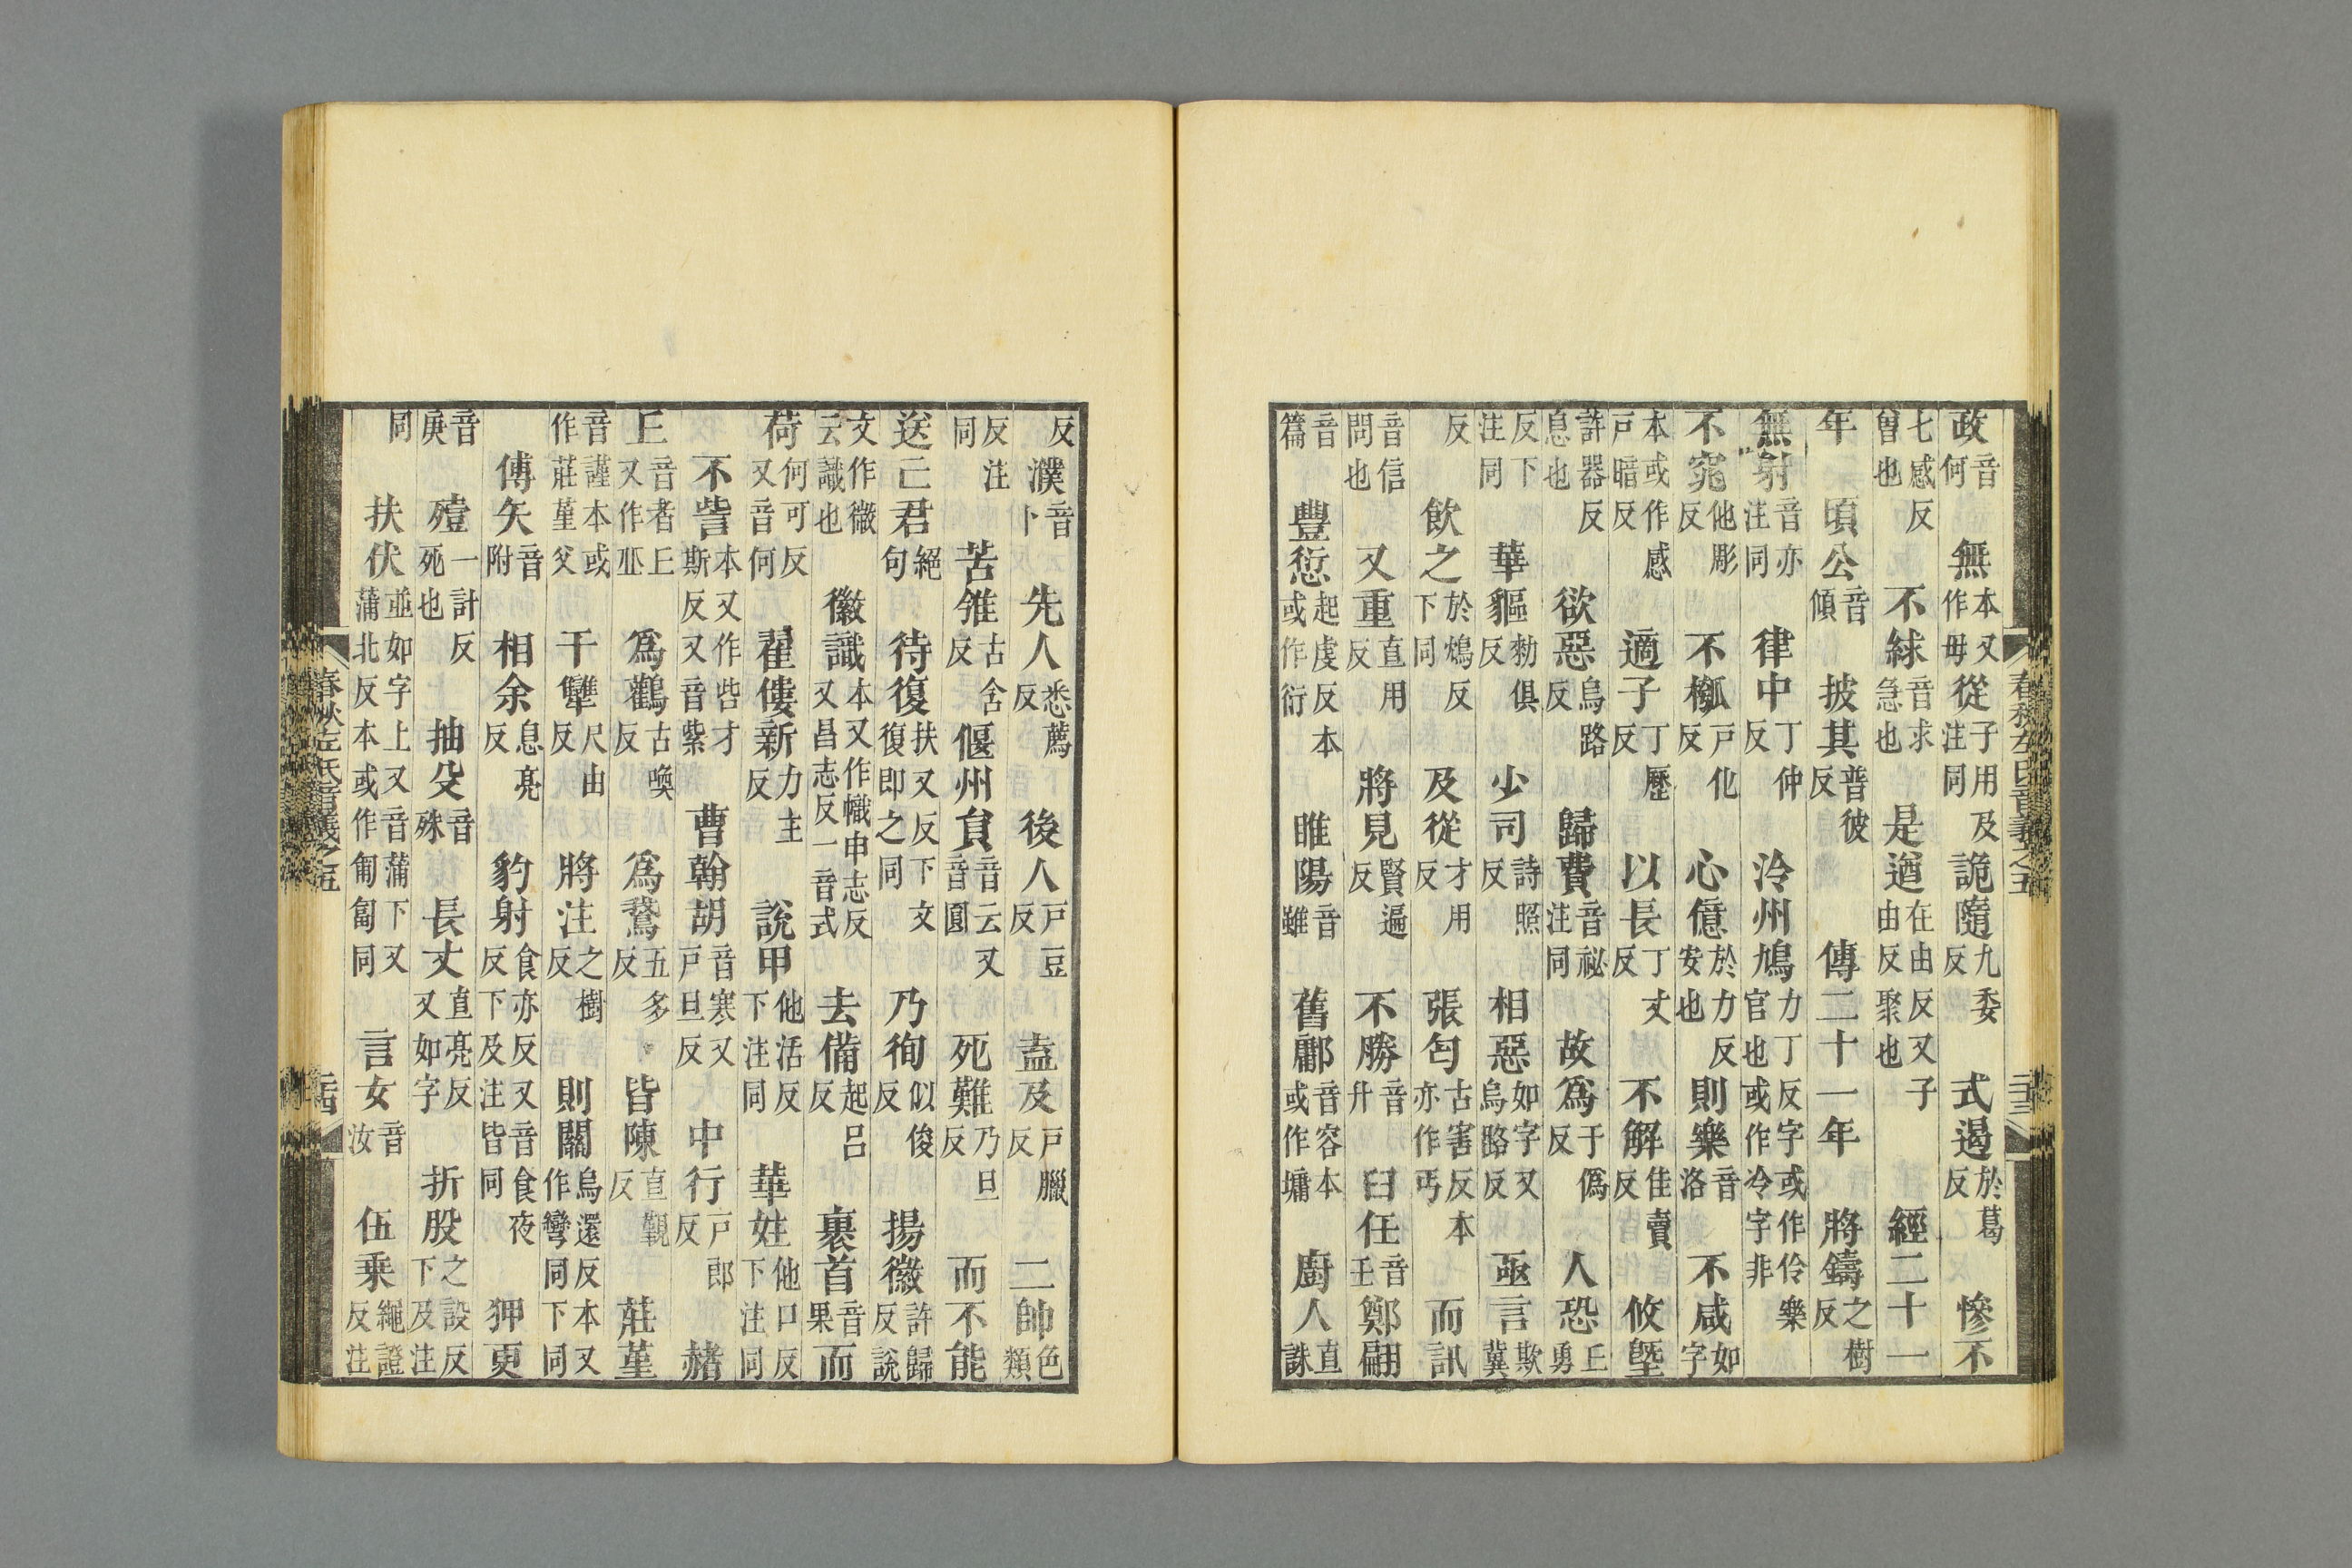 政音何 無本又作毋 從子用及注同 詭隨九委反 式遏於葛反 慘不
七感反曾也 不絿音求急也 是遒在由反又子由反聚也 經二十一
年 頃公音傾 披其普彼反 傳二十一年 將鑄之樹反
無射音亦注同 律中丁仲反 泠州鳩力丁反字或作伶樂官也或作冷字非
不窕他彫反 不槬戶化反 心億於力反安也 則樂音洛 不咸如字
本或作感戶暗反 適子丁歷反 以長丁丈反 不解佳賣反 攸塈
許器反息也 欲惡烏路反 歸費音祕注同 故為于偽反 人恐上勇
反下注同 華貙勑俱反 少司詩照反 相惡如字又烏路反 亟言欺冀
反 飲之於鴆反下同 及從才用反 張匄古害反本亦作丐 而訊
音信問也 又重直用反 將見賢遍反 不勝音升 臼任音壬 鄭翩
音篇 豐愆起虔反本或作衍 睢陽音雖 舊鄘音容本或作墉 廚人直誅
春秋左氏音義之五 二十三
反 濮音卜 先人悉薦反 後人戶豆反 盍及戶臘反 二帥色類
反注同 苦雂古含反 偃州員音云又音圓 死難乃旦反 而不能
送亡君絕句 待復扶又反下文復即之同 乃徇似俊反 揚徽許歸反說
文作微云識也 徽識本又作幟申志反又昌志反一音式 去備起呂反 裹首音果 而
荷何可反又音何 翟僂新力主反 說甲他活反下注同 華妵他口反下注同
不訾本又作呰才斯反又音紫 曹翰胡音寒又戶旦反 中行戶郎反 赭
丘音者丘又作㐀 為鸛古喚反 為鵞五多反 皆陳直覲反 莊堇
音謹本或作莊堇父 干犨尺由反 將注之樹反 則關烏還反本又作彎同下同
傅矢音附 相余息亮反 豹射食亦反又音食夜反下及注皆同 狎更
音庚 殪一計反死也 抽殳音殊 長丈直亮反又如字 折股之設反下及注
同 扶伏並如字上又音蒲下又蒲北反本或作匍匐同 言女音汝 伍乘繩證反注
春秋左氏音義之五 二十四